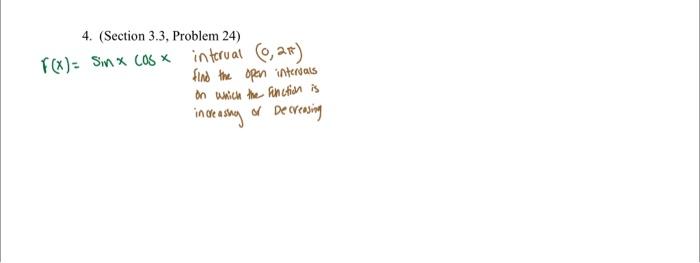 4. (Section 3.3, Problem 24)
f(x)= Sin x cos x interval (0, 2π)
find the open intervals
on which the function is
increasing or Decreasing